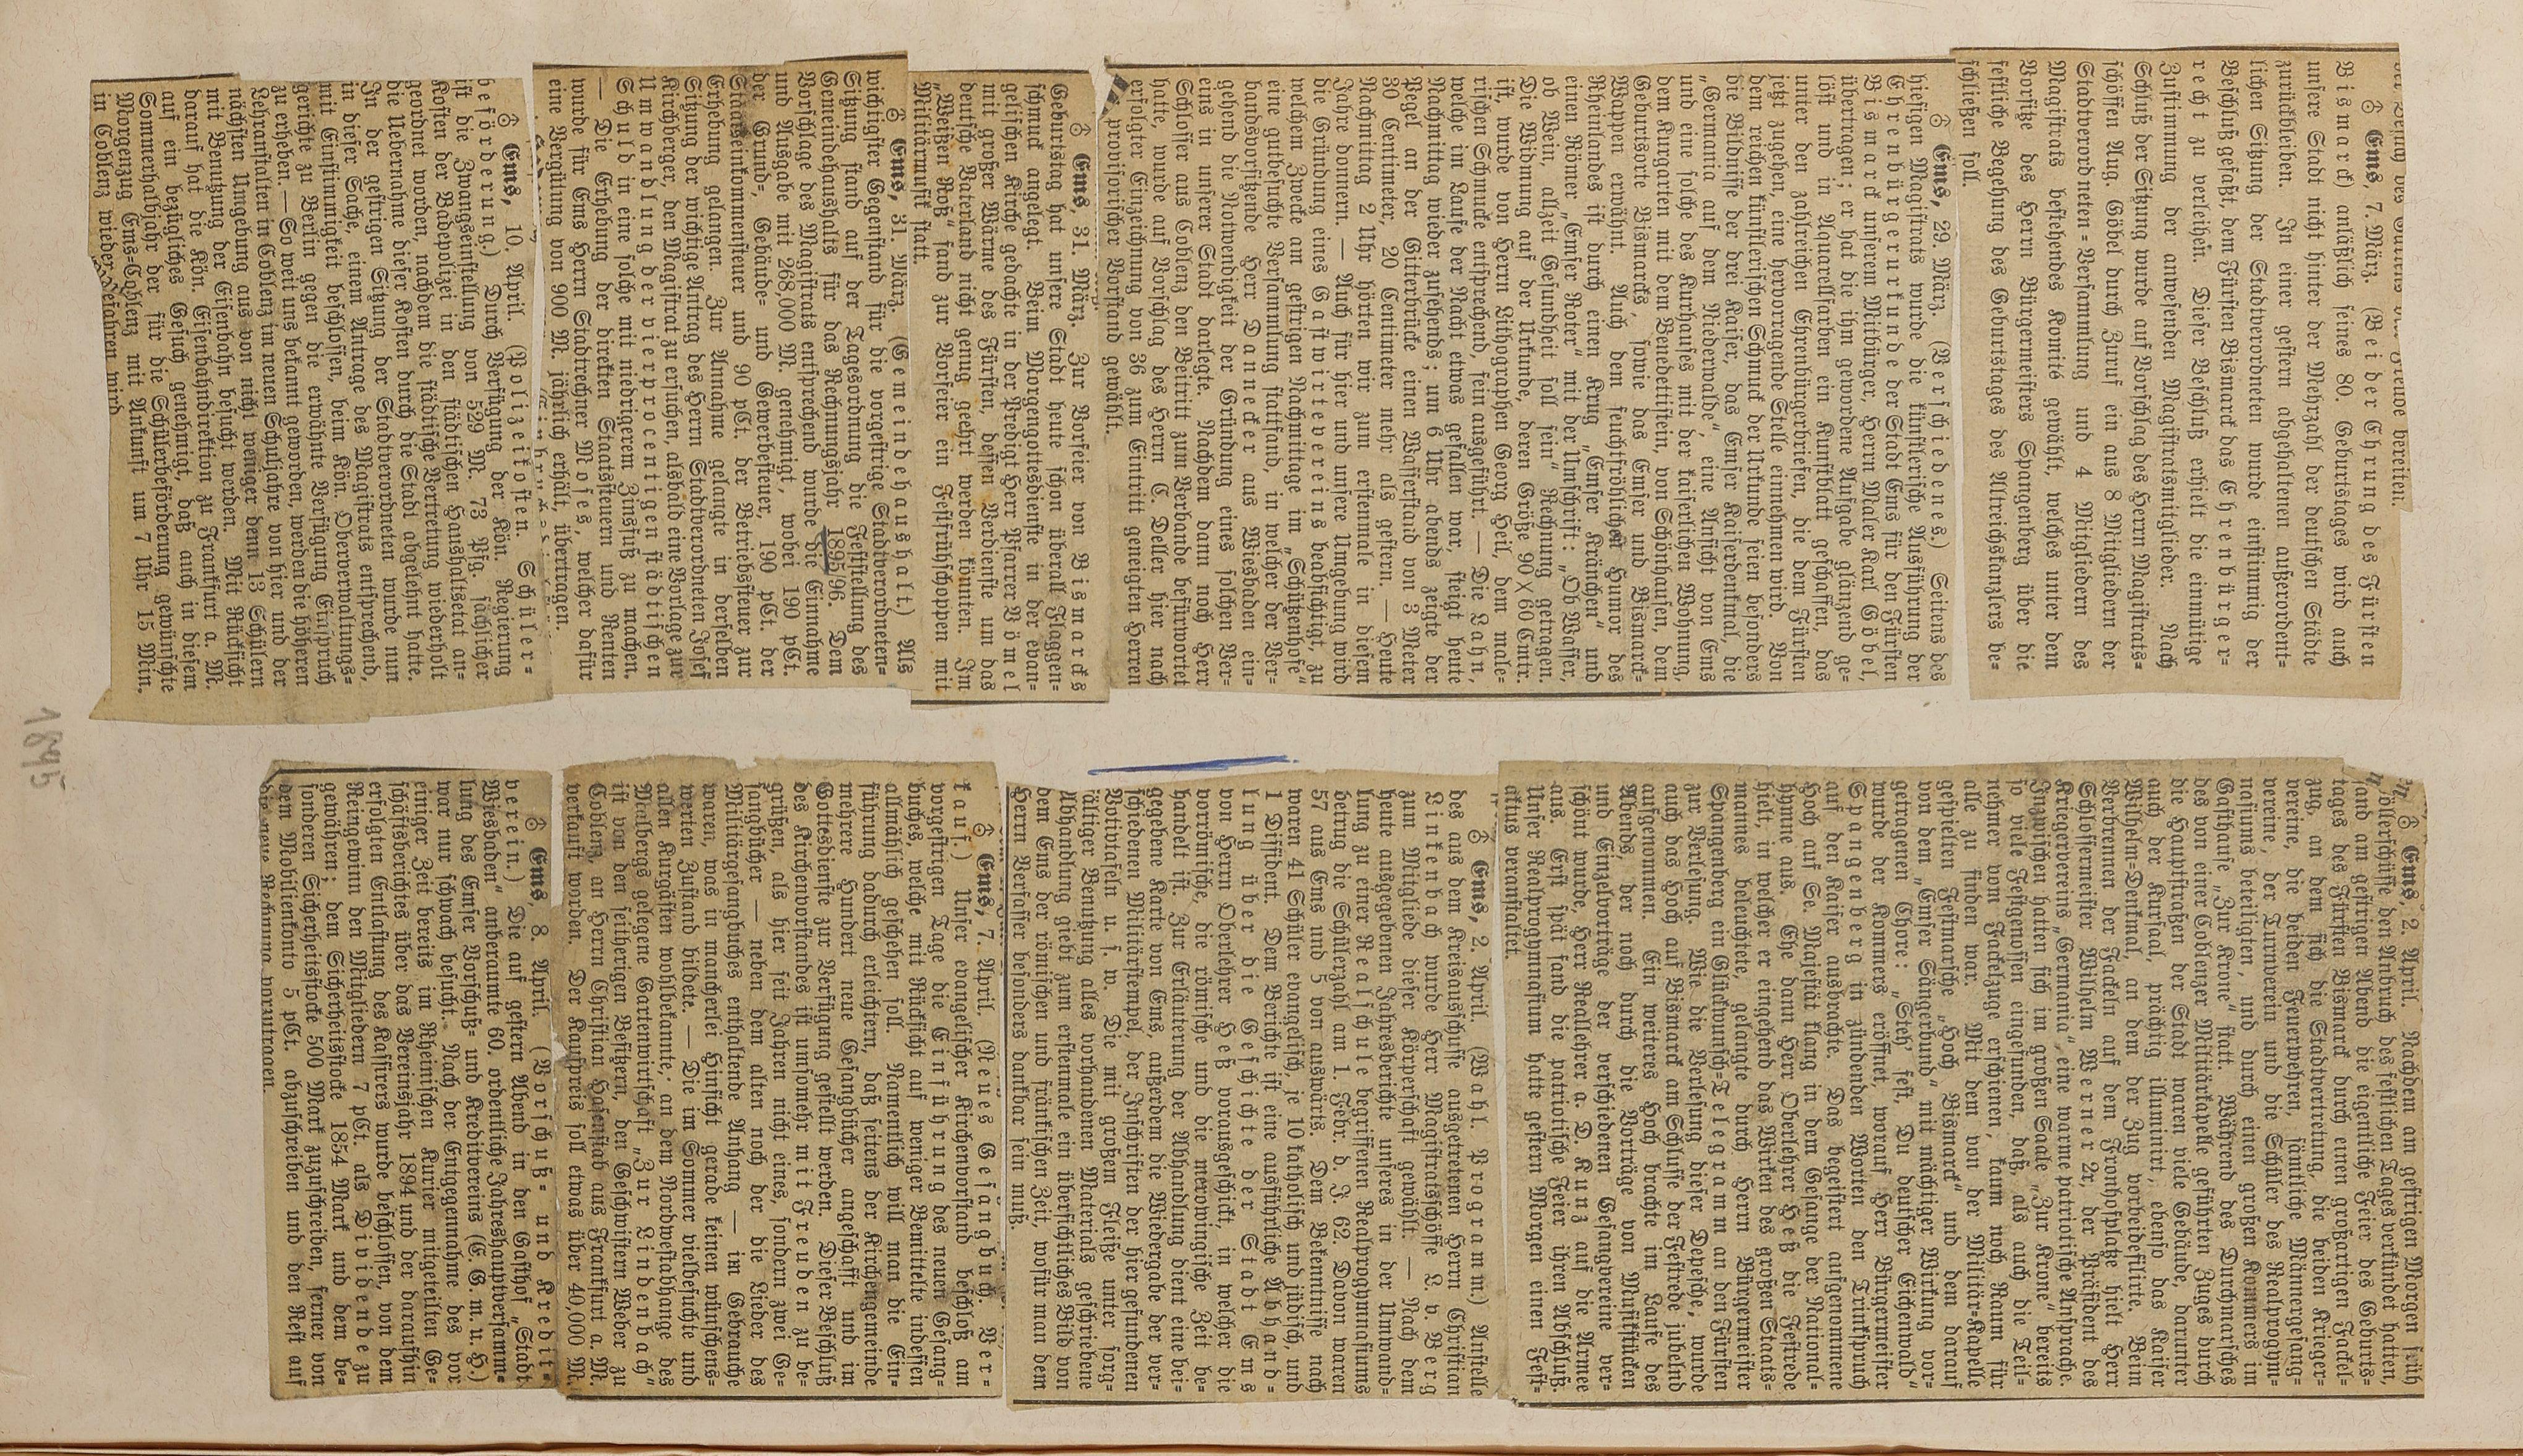 Ems, 7. März. (Bei der Ehrung des Fürsten
Bismarck) anläßlich seines 80. Geburtstages wird auch
unsere Stadt nicht hinter der Mehrzahl der deutschen Städte
zurückbleiben. In einer gestern abgehaltenen außerordent-
lichen Sitzung der Stadtverordneten wurde einstimmig der
Beschluß gefaßt, dem Fürsten Bismarck das Ehrenbürger-
recht zu verleihen. Dieser Beschluß erhielt die einmütige
Zustimmung der anwesenden Magistratsmitglieder. Nach
Schluß der Sitzung wurde auf Vorschlag des Herrn Magistrats-
schöffen Aug. Göbel durch Zuruf ein aus 8 Mitgliedern der
Stadtverordneten-Versammlung und 4 Mitgliedern des
Magistrats bestehendes Komite gewählt, welches unter dem
Vorsitze des Herrn Bürgermeisters Spangenberg über die
festliche Begehung des Geburtstages des Altreichskanzlers be-
schließen soll.
Ems, 29. März. (Verschiedenes.) Seitens des
hiesigen Magistrats wurde die künstlerische Ausführung der
Ehrenbürgerurkunde der Stadt Ems für den Fürsten
Bismarck unserem Mitbürger, Herrn Maler Karl Göbel,
übertragen; er hat die ihm gewordene Aufgabe glänzend ge-
löst und in Aquarellfarben ein Kunstblatt geschaffen, das
unter den zahlreichen Ehrenbürgerbriefen, die dem Fürsten
jetzt zugehen, eine hervorragende Stelle einnehmen wird. Von
dem reichen künstlerischen Schmuck der Urkunde seien besonders
die Bildnisse der drei Kaiser, das Emser Kaiserdenkmal, die
„Germania auf dem Niederwalde“, eine Ansicht von Ems
und eine solche des Kurhauses mit der kaiserlichen Wohnung,
dem Kurgarten mit dem Benedettistein, von Schönhausen, dem
Geburtsorte Bismarcks, sowie das Emser und Bismarck-
Wappen erwähnt. Auch dem feuchtfröhlichen Humor des
Rheinlandes ist durch einen Krug „Emser Kränchen“ und
einen Römer „Emser Roter“ mit der Umschrift: „Ob Wasser,
ob Wein, allzeit Gesundheit soll sein“ Rechnung getragen.
Die Widmung auf der Urkunde, deren Größe 90 × 60 Cmtr.
ist, wurde von Herrn Lithographen Georg Heil, dem male-
rischen Schmucke entsprechend, fein ausgeführt. — Die Lahn,
welche im Laufe der Nacht etwas gefallen war, steigt heute
Nachmittag wieder zusehends; um 6 Uhr abends zeigte der
Pegel an der Gitterbrücke einen Wasserstand von 3 Meter
30 Centimeter, 20 Centimeter mehr als gestern. — Heute
Nachmittag 2 Uhr hörten wir zum erstenmale in diesem
Jahre donnern. — Auch für hier und unsere Umgebung wird
die Gründung eines Gastwirtevereins beabsichtigt, zu
welchem Zwecke am gestrigen Nachmittage im „Schützenhofe“
eine gutbesuchte Versammlung stattfand, in welcher der Ver-
bandsvorsitzende Herr Dannecker aus Wiesbaden ein-
gehend die Notwendigkeit der Gründung eines solchen Ver-
eins in unserer Stadt darlegte. Nachdem dann noch Herr
Schlosser aus Coblenz den Beitritt zum Verbande befürwortet
hatte, wurde auf Vorschlag des Herrn C. Deller hier nach
erfolgter Einzeichnung von 36 zum Eintritt geneigten Herren
ein provisorischer Vorstand gewählt.
Ems, 31. März. Zur Vorfeier von Bismarcks
Geburtstag hat unsere Stadt heute schon überall Flaggen-
schmuck angelegt. Beim Morgengottesdienste in der evan-
gelischen Kirche gedachte in der Predigt Herr Pfarrer Vömel
mit großer Wärme des Fürsten, dessen Verdienste um das
deutsche Vaterland nicht genug geehrt werden könnten. Im
„Weißen Roß“ fand zur Vorfeier ein Festfrühschoppen mit
Militärmusik statt.
Ems, 31. März. (Gemeindehaushalt.) Als
wichtigster Gegenstand für die vorgestrige Stadtverordneten-
Sitzung stand auf der Tagesordnung die Feststellung des
Gemeindehaushalts für das Rechnungsjahr 1895/96. Dem
Vorschlage des Magistrats entsprechend wurde die Einnahme
und Ausgabe mit 268,000 M. genehmigt, wobei 190 pCt.
der Grund-, Gebäude- und Gewerbesteuer, 190 pCt. der
Staatseinkommensteuer und 90 pCt. der Betriebssteuer zur
Erhebung gelangen. Zur Annahme gelangte in derselben
Sitzung der wichtige Antrag des Herrn Stadtverordneten Josef
Kirchberger, den Magistrat zu ersuchen, alsbald eine Vorlage zur
Umwandlung der vierprocentigen städtischen
Schuld in eine solche mit niedrigerem Zinsfuß zu machen.
— Die Erhebung der direkten Staatssteuern und Renten
wurde für Ems Herrn Stadtrechner Moses, welcher dafür
eine Vergütung von 900 M. jährlich erhält, übertragen.
Ems, 10. April. (Polizeikosten. Schüler-
beförderung.) Durch Verfügung der Kön. Regierung
ist die Zwangseinstellung von 529 M. 73 Pfg. sächlicher
Kosten der Badepolizei in den städtischen Haushaltsetat an-
geordnet worden, nachdem die städtische Vertretung wiederholt
die Uebernahme dieser Kosten durch die Stadt abgelehnt hatte.
In der gestrigen Sitzung der Stadtverordneten wurde nun
in dieser Sache, einem Antrage des Magistrats entsprechend,
mit Einstimmigkeit beschlossen, beim Kön. Oberverwaltungs-
gerichte zu Berlin gegen die erwähnte Verfügung Einspruch
zu erheben. — So weit uns bekannt geworden, werden die höheren
Lehranstalten in Coblenz im neuen Schuljahre von hier und der
nächsten Umgebung aus von nicht weniger denn 13 Schülern
mit Benutzung der Eisenbahn besucht werden. Mit Rücksicht
darauf hat die Kön. Eisenbahndirektion zu Frankfurt a. M.
auf ein bezügliches Gesuch genehmigt, daß auch in diesem
Sommerhalbjahr der für die Schülerbeförderung gewünschte
Morgenzug Ems-Coblenz mit Ankunft um 7 Uhr 15 Min.
in Coblenz wieder gefahren wird.
Ems, 2. April. Nachdem am gestrigen Morgen früh
Böllerschüsse den Anbruch des festlichen Tages verkündet hatten,
fand am gestrigen Abend die eigentliche Feier des Geburts-
tages des Fürsten Bismarck durch einen großartigen Fackel-
zug, an dem sich die Stadtvertretung, die beiden Krieger-
vereine, die beiden Feuerwehren, sämtliche Männergesang-
vereine, der Turnverein und die Schüler des Realprogym-
nasiums beteiligten, und durch einen großen Kommers im
Gasthause „Zur Krone“ statt. Während des Durchmarsches
des von einer Coblenzer Militärkapelle geführten Zuges durch
die Hauptstraßen der Stadt waren viele Gebäude, darunter
auch der Kursaal, prächtig illuminirt, ebenso das Kaiser
Wilhelm-Denkmal, an dem der Zug vorbeidefilirte. Beim
Verbrennen der Fackeln auf dem Fronhofplatze hielt Herr
Schlossermeister Wilhelm Werner 2r, der Präsident des
Kriegervereins „Germania“, eine warme patriotische Ansprache.
Inzwischen hatten sich im großen Saale „Zur Krone“ bereits
so viele Festgenossen eingefunden, daß, als auch die Teil-
nehmer vom Fackelzuge erschienen, kaum noch Raum für
alle zu finden war. Mit dem von der Militär-Kapelle
gespielten Festmarsche „Hoch Bismarck“ und dem darauf
von dem „Emser Sängerbund“ mit mächtiger Wirkung vor-
getragenen Chore: „Steh' fest, Du deutscher Eichenwald“
wurde der Kommers eröffnet, worauf Herr Bürgermeister
Spangenberg in zündenden Worten den Trinkspruch
auf den Kaiser ausbrachte. Das begeistert aufgenommene
Hoch auf Se. Majestät klang in dem Gesange der National-
hymne aus. Ehe dann Herr Oberlehrer Heß die Festrede
hielt, in welcher er eingehend das Wirken des großen Staats-
mannes beleuchtete, gelangte durch Herrn Bürgermeister
Spangenberg ein Glückwunsch-Telegramm an den Fürsten
zur Verlesung. Wie die Verlesung dieser Depesche, wurde
auch das Hoch auf Bismarck am Schlusse der Festrede jubelnd
aufgenommen. Ein weiteres Hoch brachte im Laufe des
Abends, der noch durch die Vorträge von Musikstücken
und Einzelvorträge der verschiedenen Gesangvereine ver-
schönt wurde, Herr Reallehrer a. D. Kunz auf die Armee
aus. Erst spät fand die patriotische Feier ihren Abschluß.
Unser Realprogymnasium hatte gestern Morgen einen Fest-
aktus veranstaltet.
Ems, 2. April. (Wahl. Programm.) Anstelle
des aus dem Kreisausschusse ausgetretenen Herrn Christian
Linkenbach wurde Herr Magistratsschöffe L. v. Berg
zum Mitgliede dieser Körperschaft gewählt. — Nach dem
heute ausgegebenen Jahresberichte unseres in der Umwand-
lung zu einer Realschule begriffenen Realprogymnasiums
betrug die Schülerzahl am 1. Febr. d. J. 62. Davon waren
57 aus Ems und 5 von auswärts. Dem Bekenntnisse nach
waren 41 Schüler evangelisch, je 10 katholisch und jüdisch, und
1 Dissident. Dem Berichte ist eine ausführliche Abhand-
lung über die Geschichte der Stadt Ems
von Herrn Oberlehrer Heß vorausgeschickt, in welcher die
vorrömische, die römische und die merowingische Zeit be-
handelt ist. Zur Erläuterung der Abhandlung dient eine bei-
gegebene Karte von Ems, außerdem die Wiedergabe der ver-
schiedenen Militärstempel, der Inschriften der hier gefundenen
Votivtafeln u. s. w. Die mit großem Fleiße unter sorg-
fältiger Benutzung alles vorhandenen Materials geschriebene
Abhandlung giebt zum erstenmale ein übersichtliches Bild von
dem Ems der römischen und fränkischen Zeit, wofür man dem
Herrn Verfasser besonders dankbar sein muß.
Ems, 7. April. (Neues Gesangbuch. Ver-
kauf.) Unser evangelischer Kirchenvorstand beschloß am
vorgestrigen Tage die Einführung des neuen Gesang-
buches, welche mit Rücksicht auf weniger Bemittelte indessen
allmählich geschehen soll. Namentlich will man die Ein-
führung dadurch erleichtern, daß seitens der Kirchengemeinde
mehrere Hundert neue Gesangbücher angeschafft und im
Gottesdienste zur Verfügung gestellt werden. Dieser Beschluß
des Kirchenvorstandes ist umsomehr mit Freuden zu be-
grüßen, als hier seit Jahren nicht eines, sondern zwei Ge-
sangbücher — neben dem alten noch der die Lieder des
Militärgesangbuches enthaltende Anhang — im Gebrauche
waren, was in mancherlei Hinsicht gerade keinen wünschens-
werten Zustand bildete. — Die im Sommer vielbesuchte und
allen Kurgästen wohlbekannte, an dem Nordwestabhange des
Malbergs gelegene Gartenwirtschaft „Zur Lindenbach“
ist von den seitherigen Besitzern, den Geschwistern Weber zu
Coblenz, an Herrn Christian Hasenstab aus Frankfurt a. M.
verkauft worden. Der Kaufpreis soll etwas über 40,000 M.
Ems, 8. April. (Vorschuß- und Kredit-
verein.) Die auf gestern Abend in den Gasthof „Stadt
Wiesbaden“ anberaumte 60. ordentliche Jahreshauptversamm-
lung des Emser Vorschuß- und Kreditvereins (E. G. m. u. H.)
war nur schwach besucht. Nach der Entgegennahme des vor
einiger Zeit bereits im Rheinischen Kurier mitgeteilten Ge-
schäftsberichtes über das Vereinsjahr 1894 und der daraufhin
erfolgten Entlastung des Kassirers wurde beschlossen, von dem
Reingewinn den Mitgliedern 7 pCt. als Dividende zu
gewähren; dem Sicherheitsstocke 1854 Mark und dem be-
sonderen Sicherheitsstocke 500 Mark zuzuschreiben, ferner von
dem Mobilienkonto 5 pCt. abzuschreiben und den Rest auf
die neue Rechnung vorzutragen.
1895